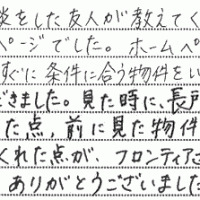 談をした友人が教えてく
ページでした。ホームペ
すぐに条件に合う物件をい
できました。見た時に、長戸
た点，前に見た物件
くれた点が フロンティアさ
ありがとうございました